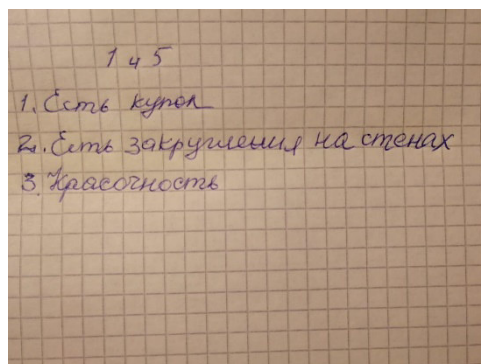 1 и 5
1. Есть купол
2. Есть закругления на стенах
3. Красочность